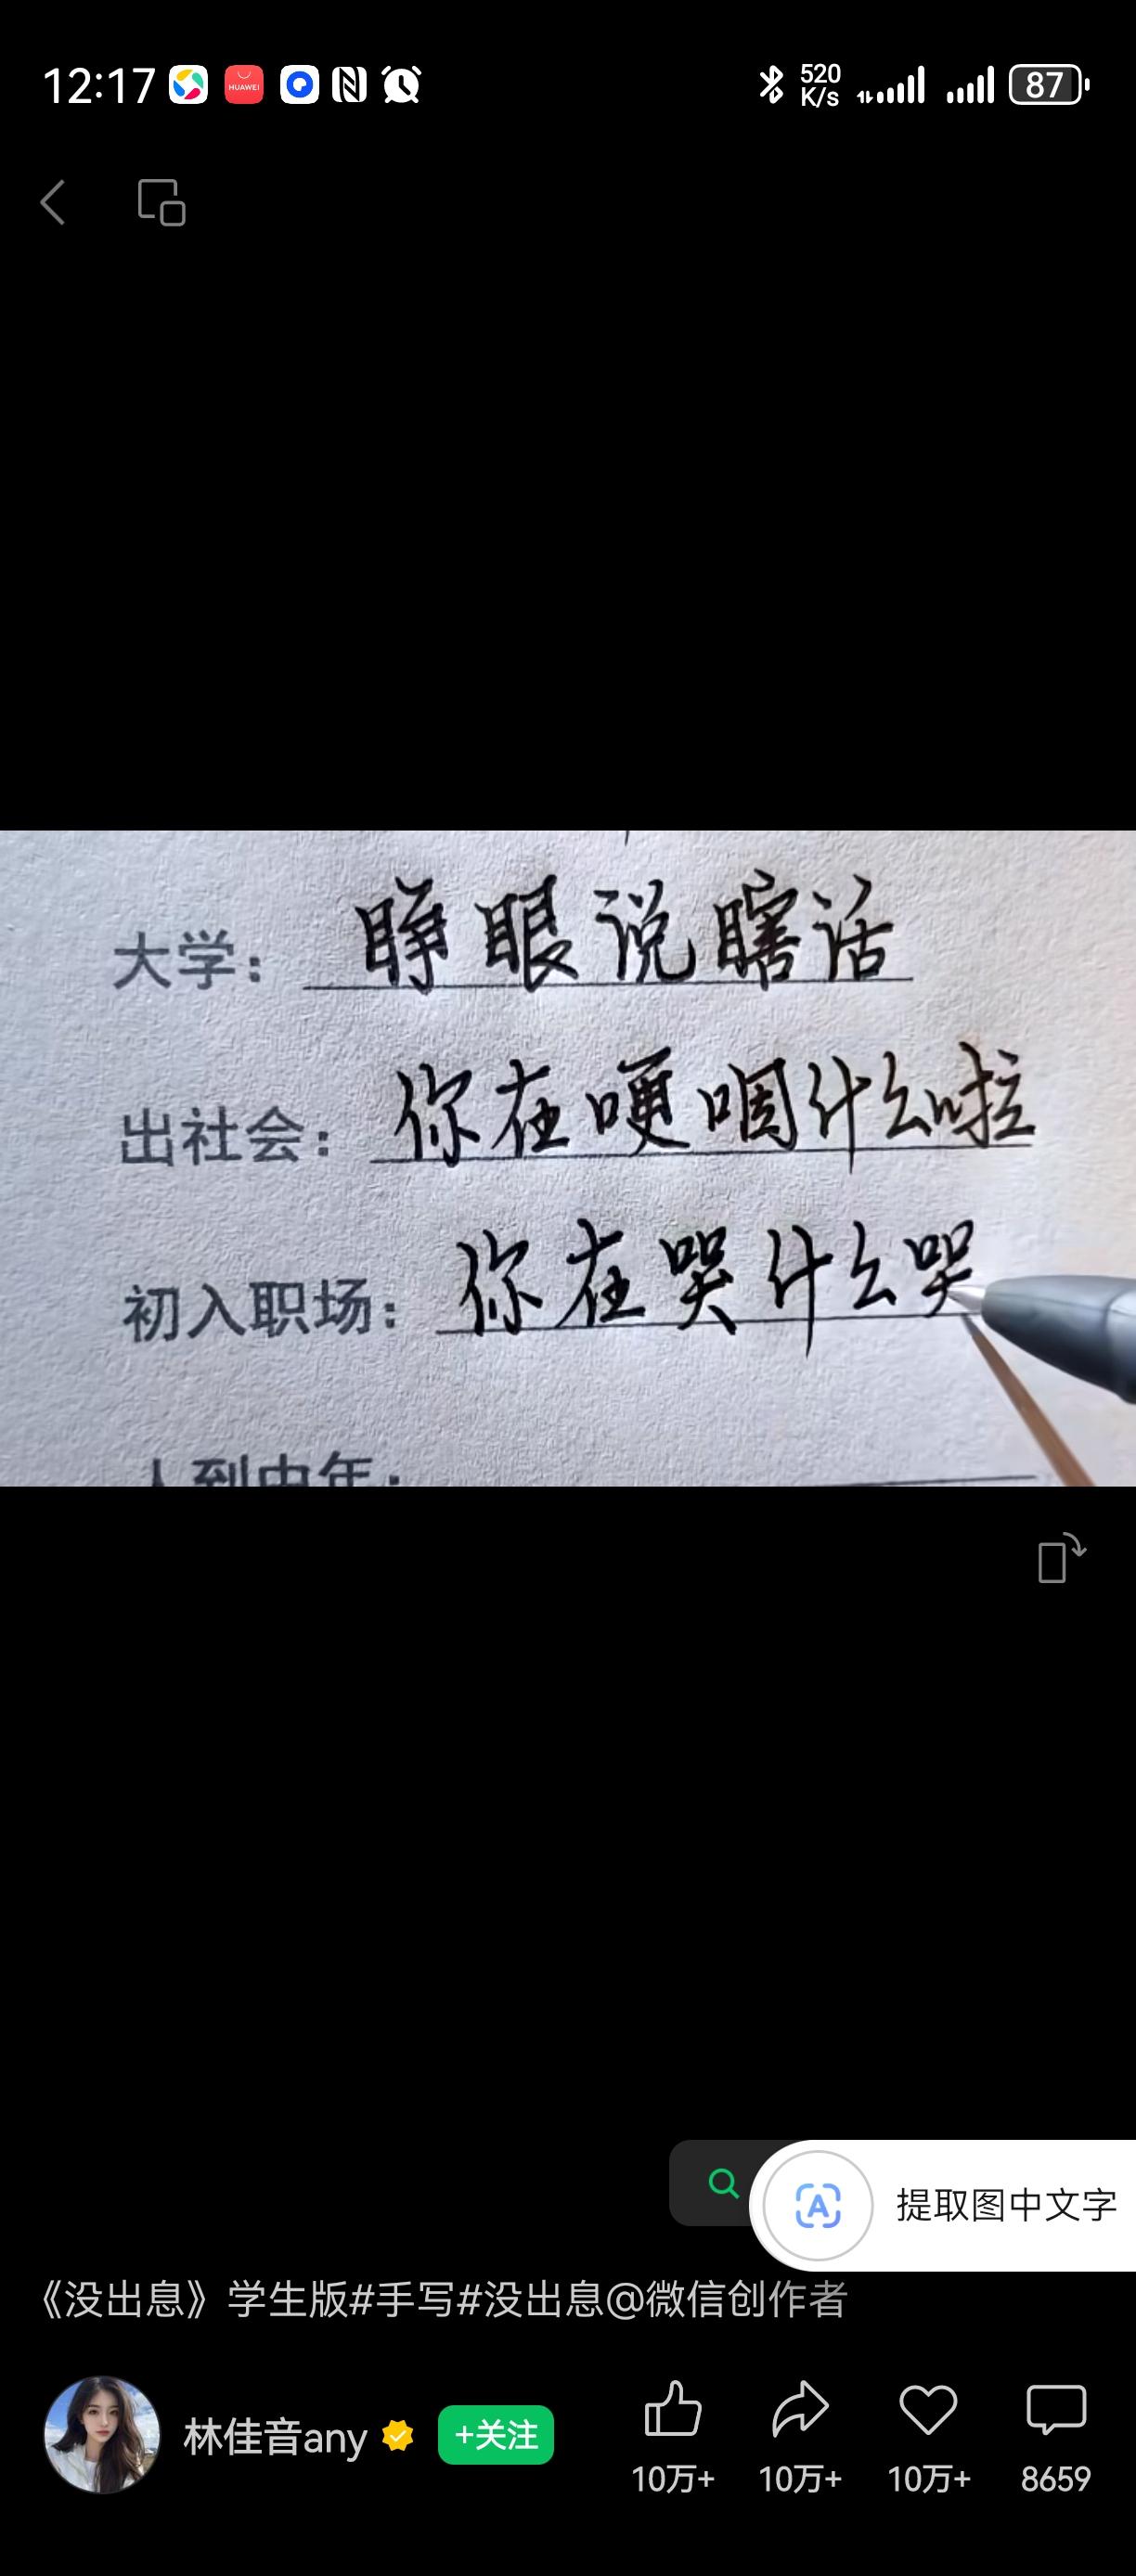 12:17
HUAWEI
520
K/s
87
大学: 睁眼说瞎话
出社会: 你在哽咽什么啦
初入职场: 你在哭什么哭
人到中年:
提取图中文字
《没出息》学生版#手写#没出息@微信创作者
林佳音any +关注
10万+ 10万+ 10万+ 8659